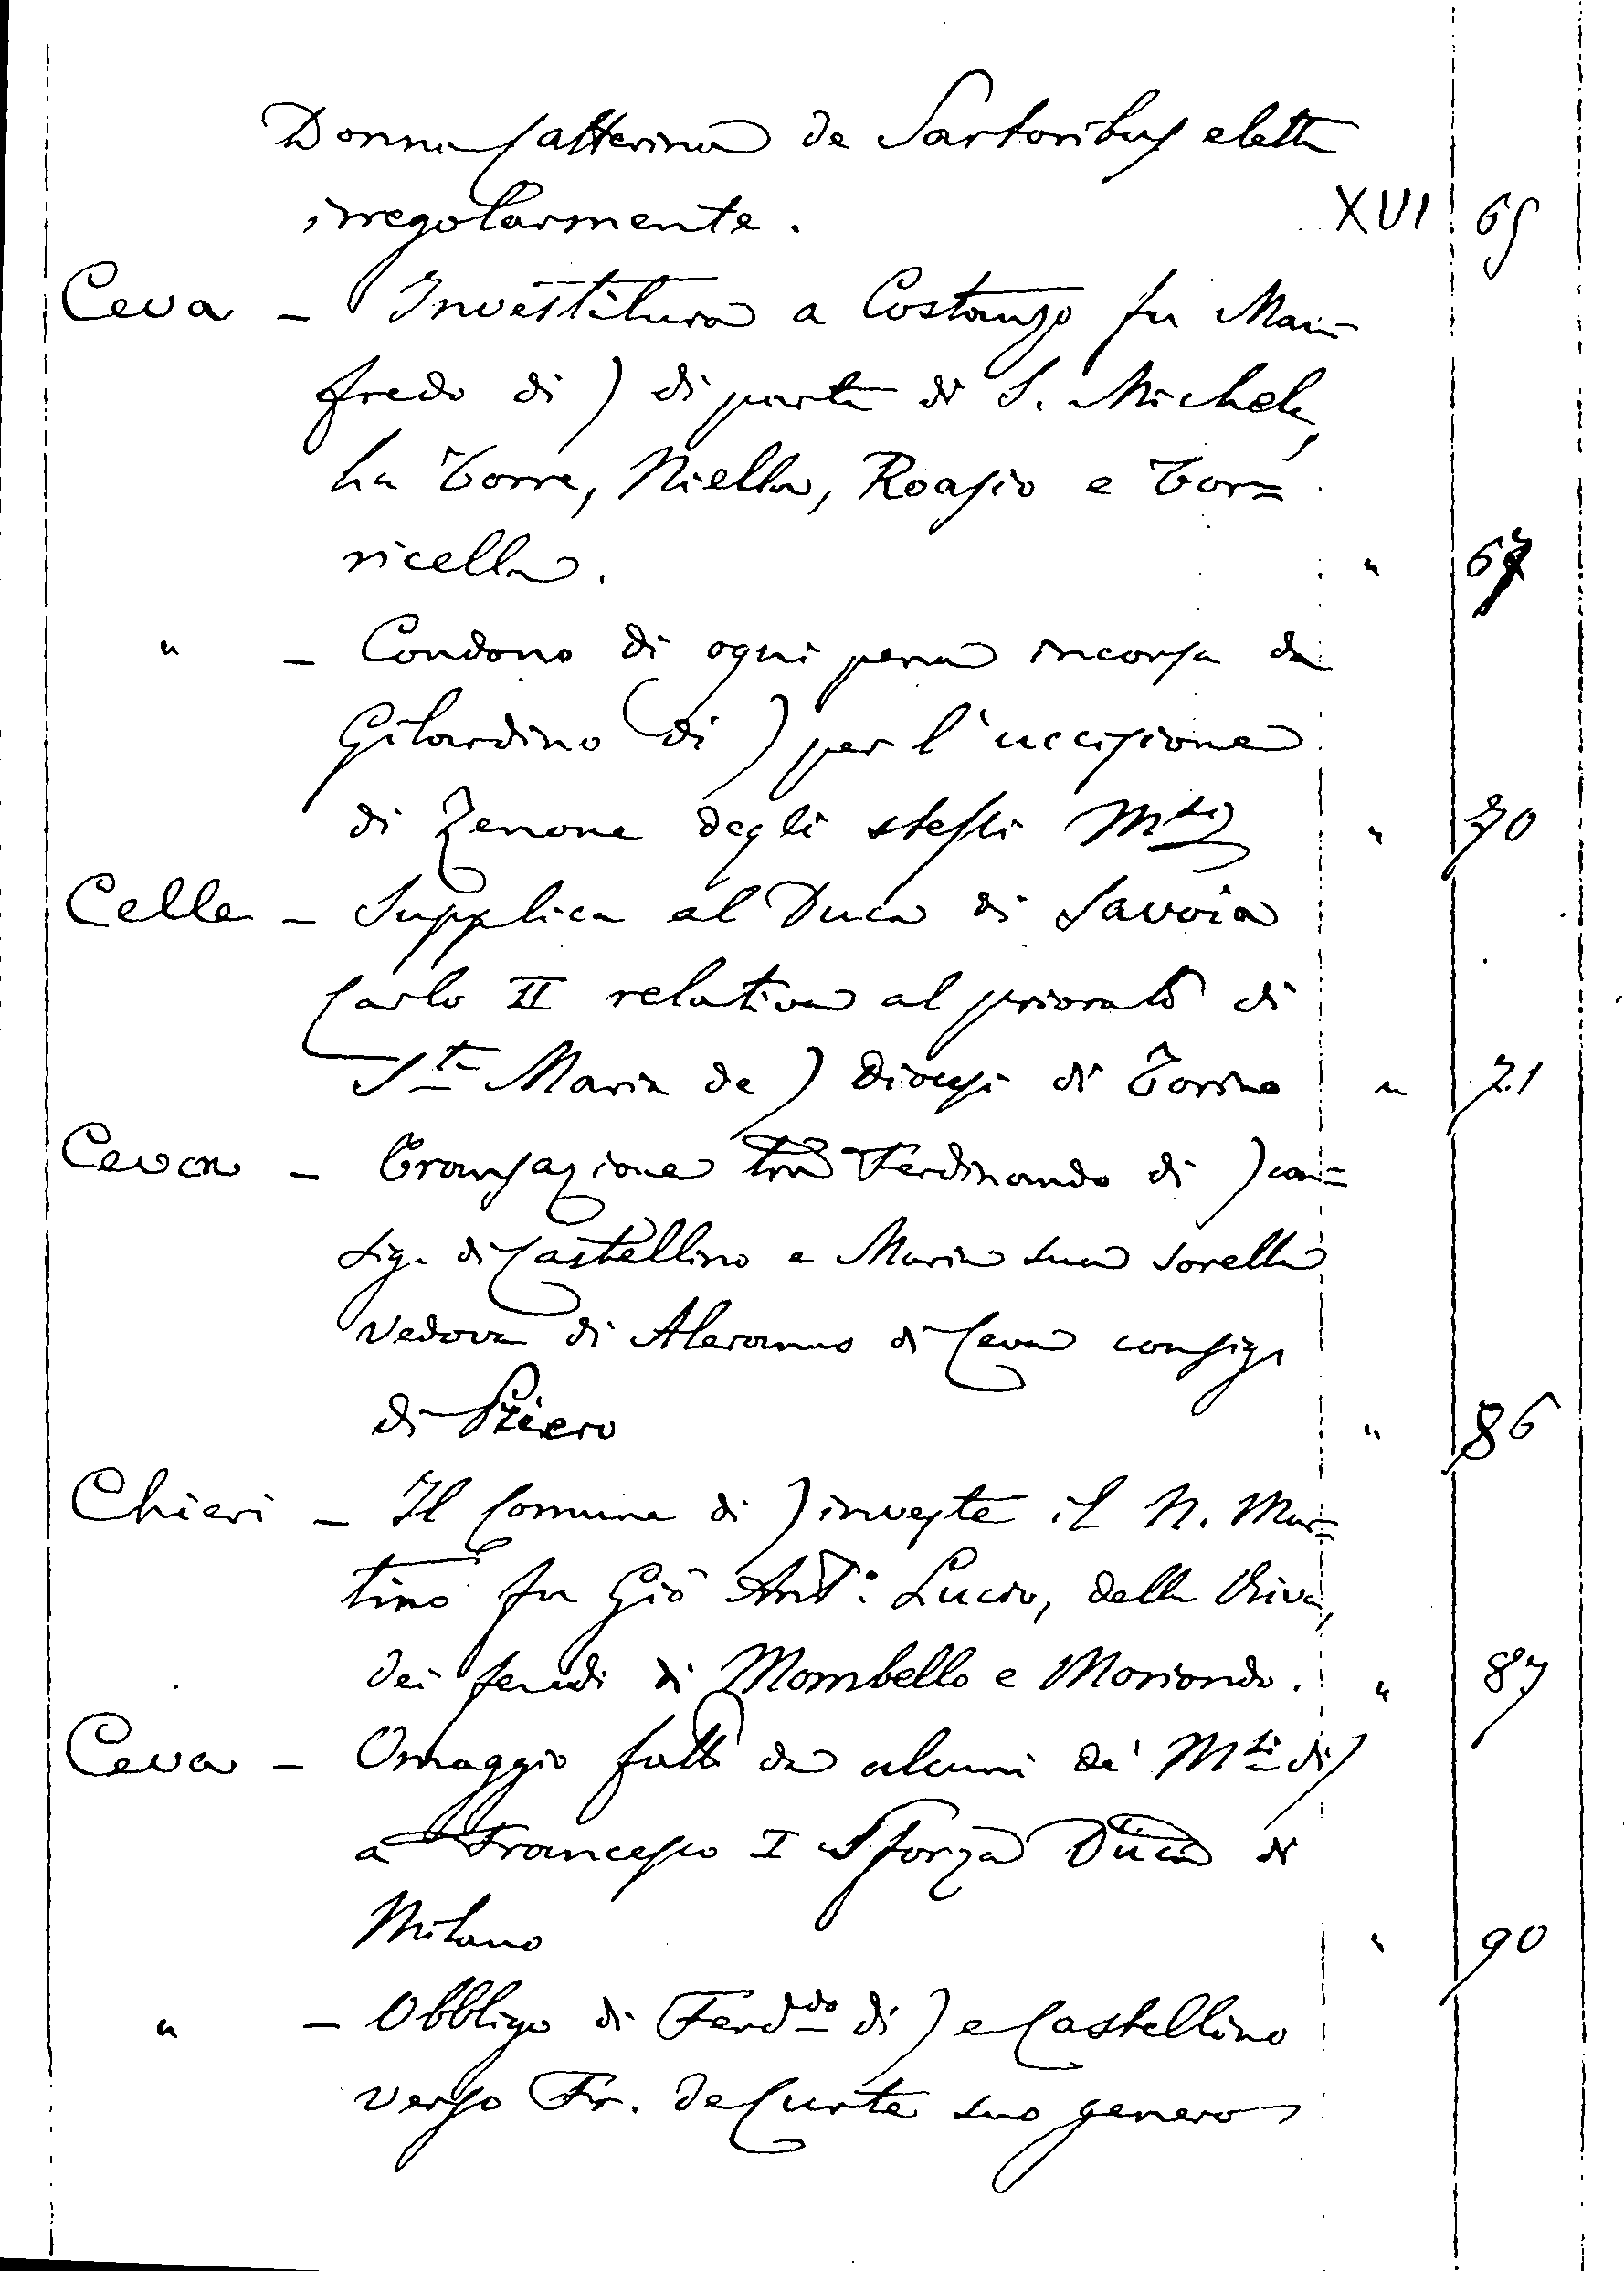 Donna Catterina de Sartoribus eletta
irregolarmente. XVI 65
Ceva - Investitura a Costanzo fu Man=
fredo di ) di parte di S. Michele,
La Torre, Niella, Roasio e Tor=
ricella. " 67
" - Condono di ogni pena incorsa da
Gilardino (di ) per l'uccisione
di Zenone degli stessi M.si " 70
Celle - Supplica al Duca di Savoia
Carlo II relativa al priorato di
Sta Maria de ) Diocesi di Torino " 71
Ceva - Transazione tra Ferdinando di ) con=
sig. di Castellino e Maria sua sorella
vedova di Aleramo di Ceva consig.
di " 86
Chieri - Il Comune di ) investe il N. Mar=
tino fu Gio Ant.o Lucio, della Riva,
dei feudi di Mombello e Moriondo. " 87
Ceva - Omaggio fatto da alcuni de' M.si di )
a Francesco I Sforza Duca di
Milano " 90
" - Obbligo di Ferd.do di ) e Castellino
verso Fr. de Curte suo genero